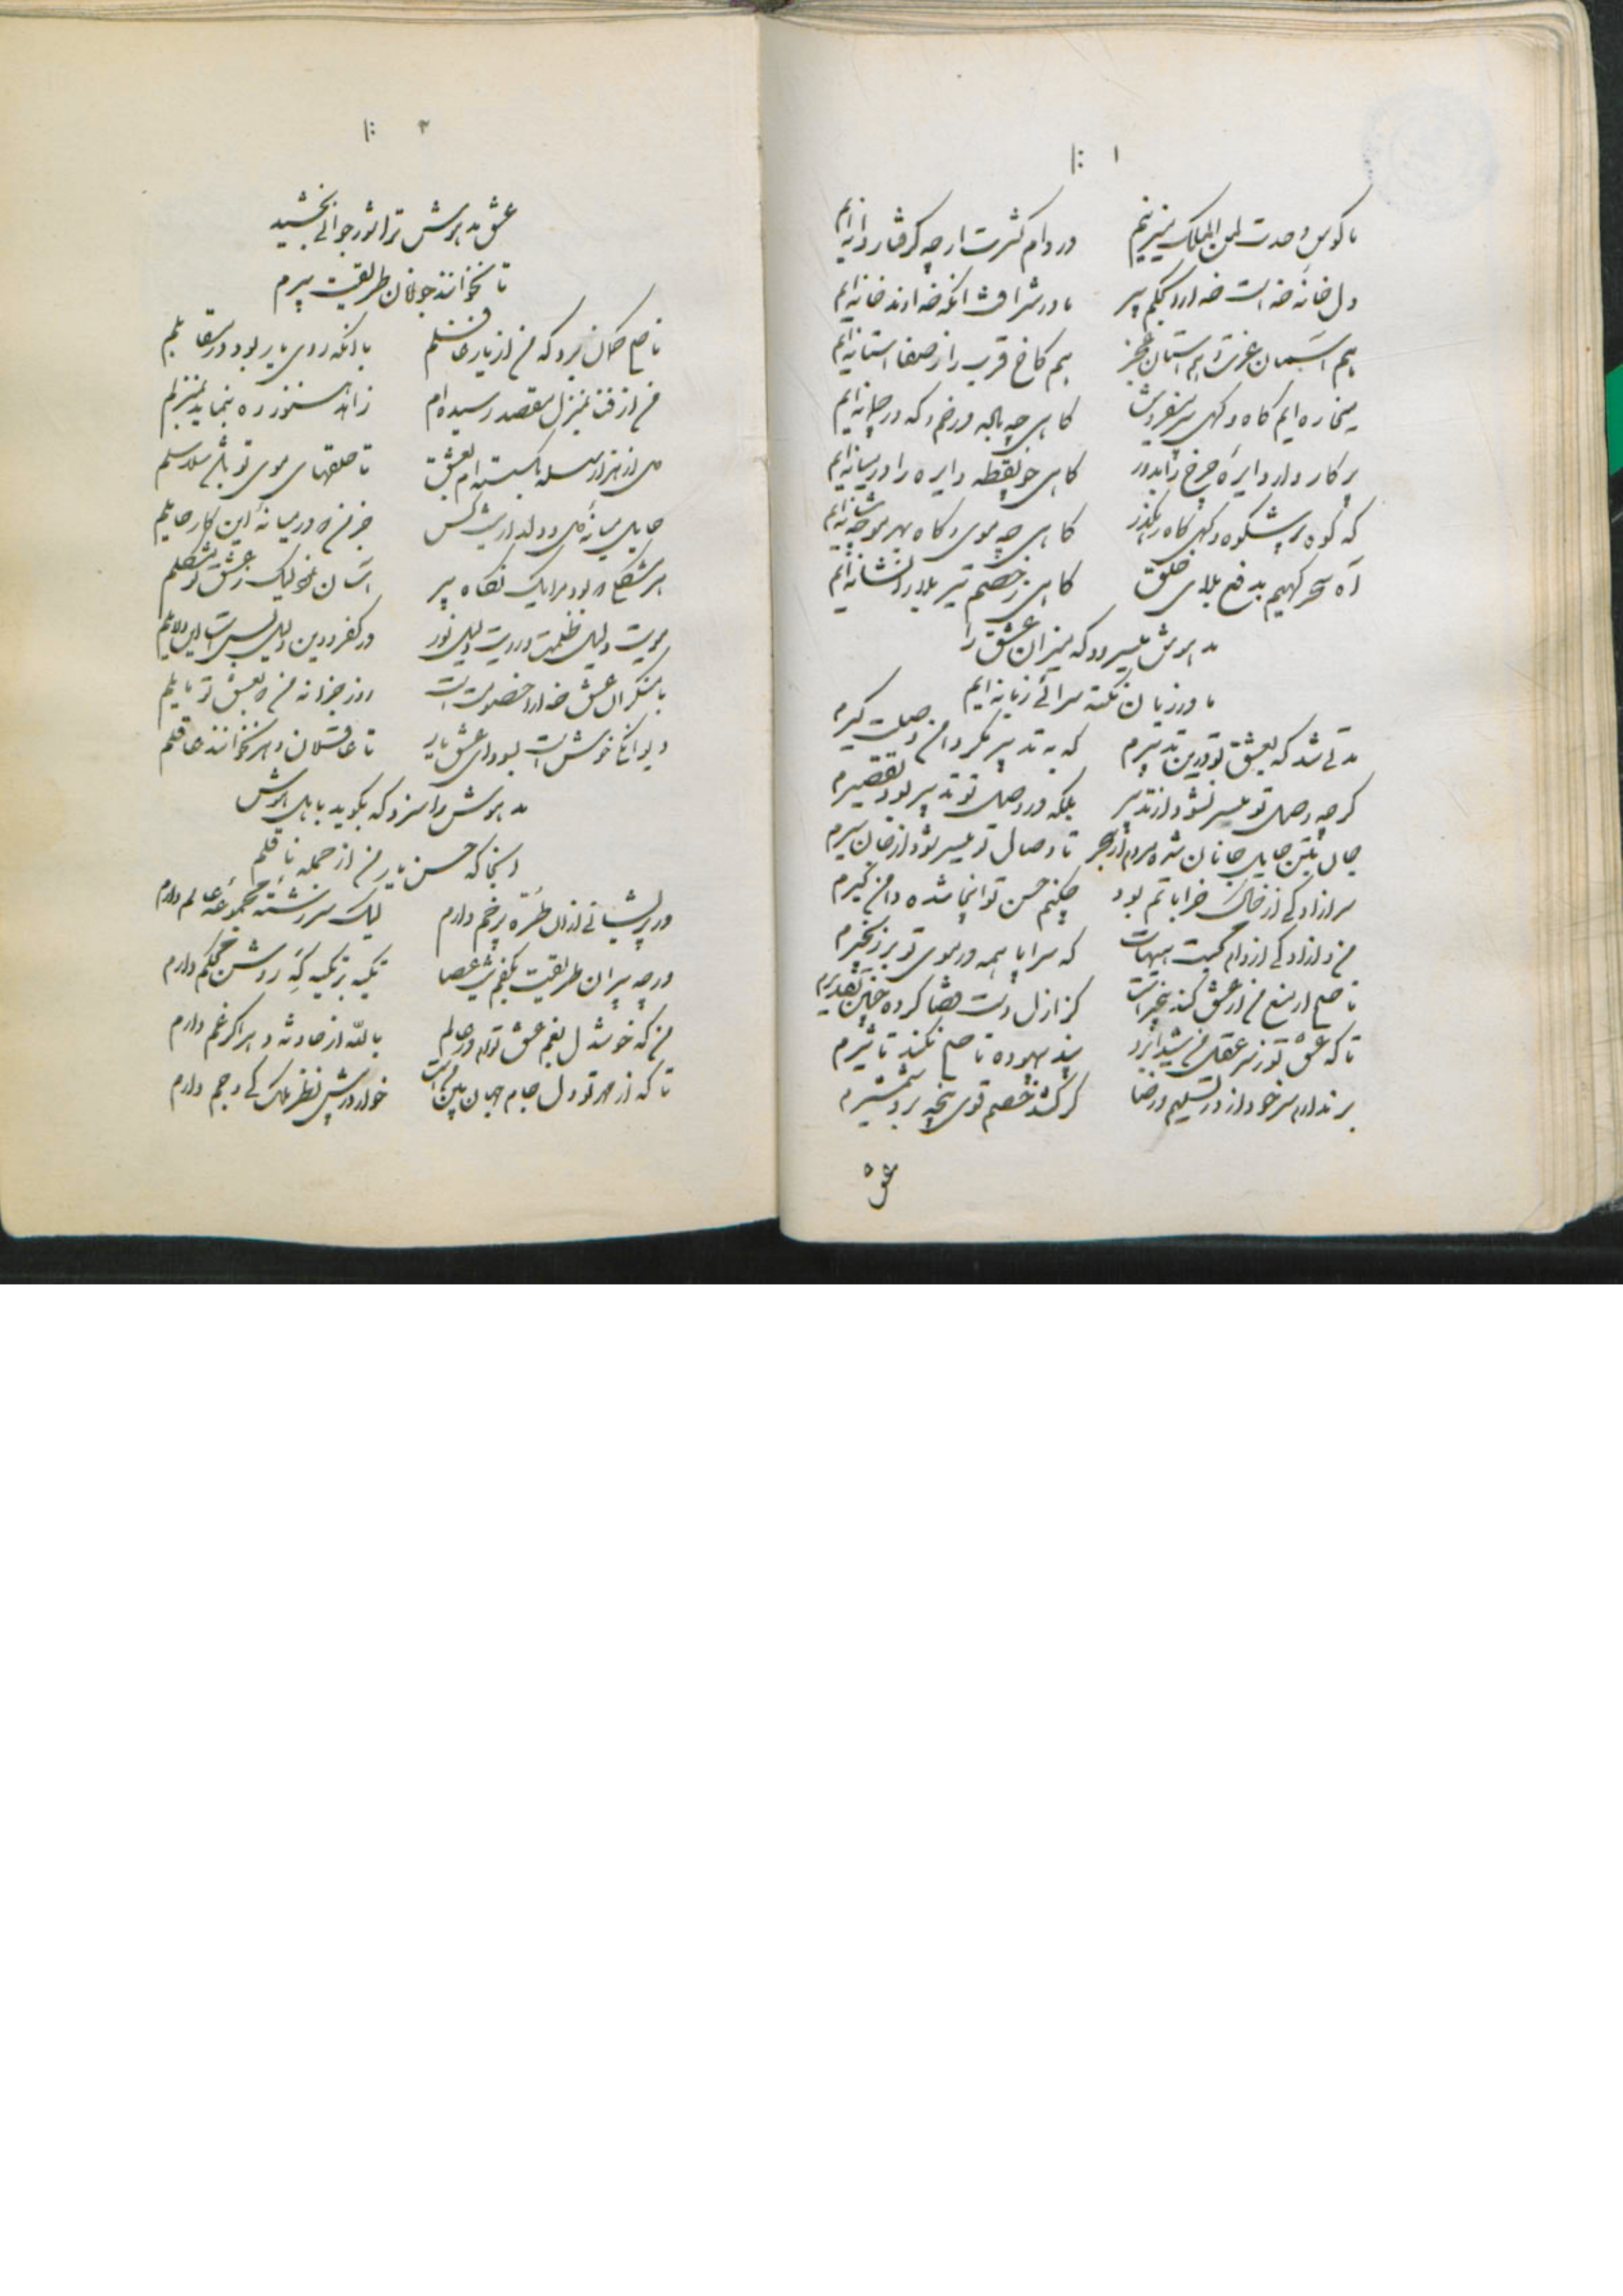 ۱
ما کوس وحدت لمن الملک میزنیم در دام کثرت ارچه گرفتار دانه‌ایم
دل خانه خداست خدا را بحکم پیر ما در شرافت آنکه خداوند خانه‌ایم
هم آسمان عزت و هم آستان عجز هم کاخ قرب را ز صفا آستانه‌ایم
میخاره‌ایم گاه و گهی میفروش گاهی چه باده در خم و گه در چمانه‌ایم
پرگار وار دایره چرخ را بدور گاهی چو نقطه دایره را در میانه‌ایم
که کوه پر شکوه و گهی کاه رهگذر گاهی چه موی و گاه بهر مو چه شانه‌ایم
آه سحرگهیم بدفع بلای خلق گاهی ز خصم تیر بلا را نشانه‌ایم
مدهوش میسرود که میزان عشق را
ما در زبان نکته سرائی زبانه‌ایم
مدتی شد که بعشق تو درین تدبیرم که به تدبیر مگر دامن وصلت گیرم
گرچه وصل تو میسر نشود از تدبیر بلکه در وصل تو تدبیر بود تقصیرم
جان بتن حایل جانان شده مردم از هجر تا وصال تو میسر شود از جان سیرم
سر آزادگی از خاک خراباتم بود چکنم حسن تو اینجا شده دامن گیرم
من و آزادگی از دام غمت هیهات که سراپا همه در موی تو بر زنجیرم
ناصح ار منع من از عشق کند بیخبر است کز ازل دست قضا کرده چنین تقدیرم
تا که عشق تو ز سر عقل من شیدا برد پند بیهوده ناصح نکند تاثیرم
بر ندارم سر خود از در تسلیم و رضا گر کشد خصم قوی پنجه برو شمشیرم
عشق
۲
عشق مدهوش ترا شور جوانی بخشید
تا نخوانند جوانان طریقت پیرم
ناصح گمان نبرد که من از یار غافلم با آنکه روی یار بود در مقابلم
من از فتن بمنزل مقصد رسیده‌ام زاهد هنوز ره بنماید بمنزلم
دل از هزار سلسله بگسسته‌ام بعشق تا حلقهای موی تو باشد سلاسلم
حایل میانه دل و دلدار نیست کس جز من که در میانه این کار حایلم
هر مشکلم بود مرا یک نگاه پیر آسان نمود لیک ز عشق تو مشکلم
مویت دلیل ظلمت و رویت دلیل نور در کفر و دین دلیل بس است این دلایلم
با منکران عشق خدا را خصومت است روز جزا نه من که بعشق تو مایلم
دیوانگی خوش است بسودای عشق یار تا عاقلان دهر نخوانند عاقلم
مدهوش را سزد که بگوید باهل هوش
اینجا که حسن یار من از حمله ناقلم
در پریشانی از آن طره پر خم دارم لیک سر رشته مجموعه عالم دارم
در چه پیران طریقت بکفم نیست عصا تکیه بر تکیه که روشن محکم دارم
من که خوشدل بغم عشق توام در عالم بالله از حادثه دهر اگر غم دارم
تا که از مهر تو دل جام جهان بین من است خوار در پیش نظر ملک کی و جم دارم